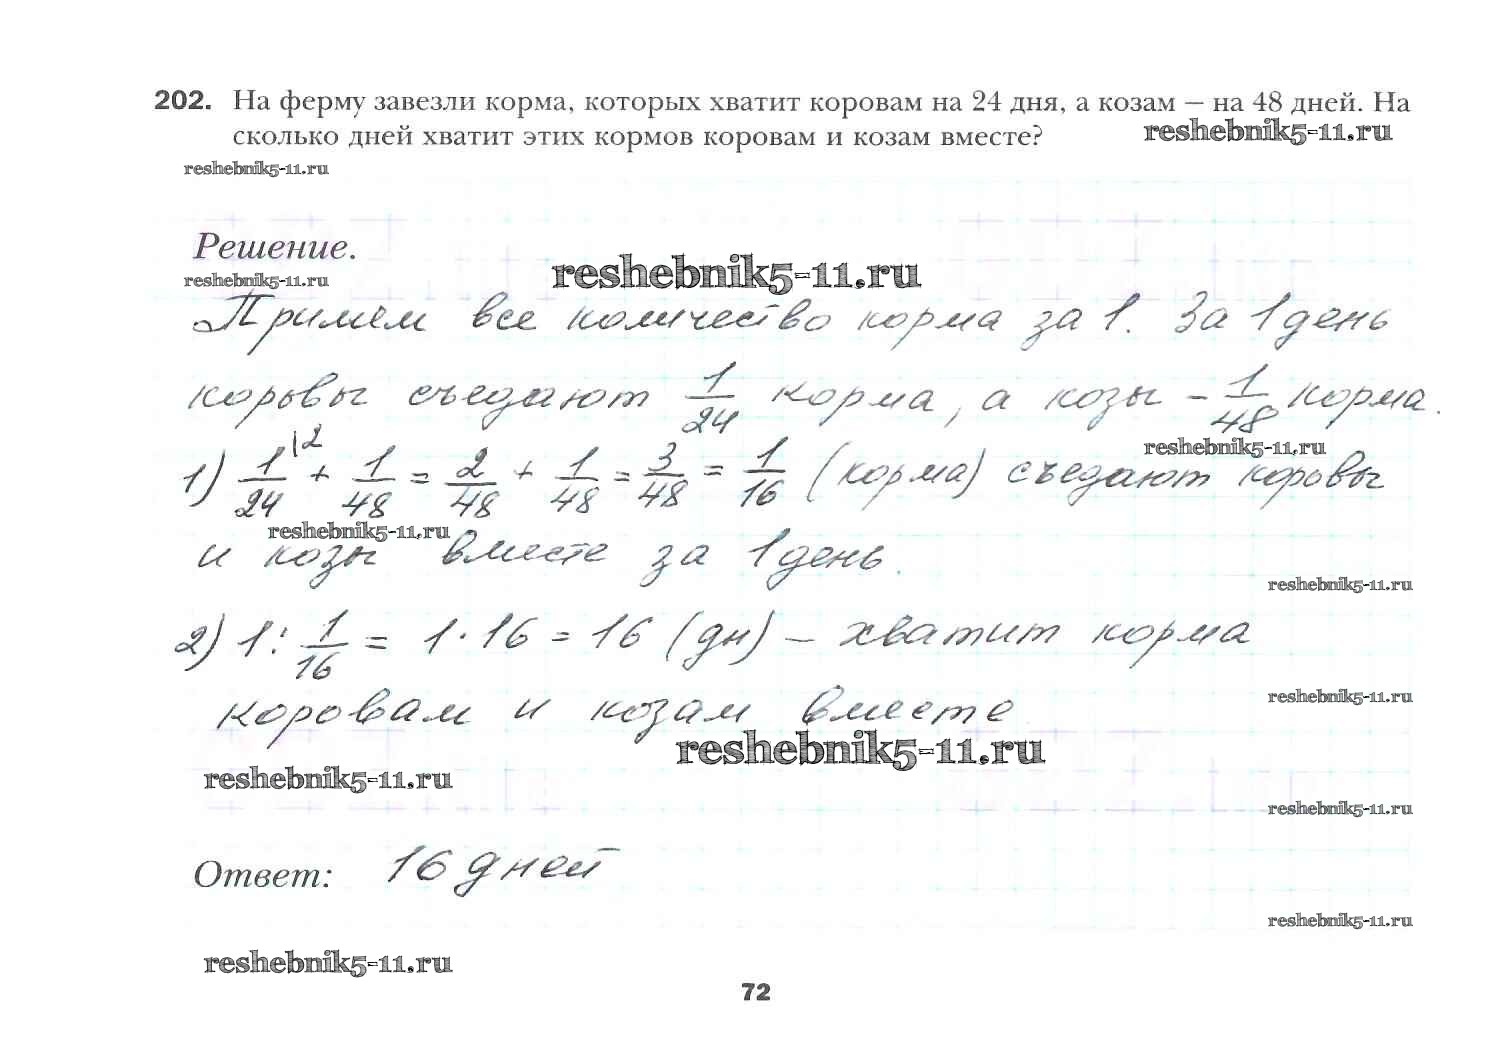 202. На ферму завезли корма, которых хватит коровам на 24 дня, а козам – на 48 дней. На
сколько дней хватит этих кормов коровам и козам вместе?
reshebnik5-11.ru
reshebnik5-11.ru
Решение.
reshebnik5-11.ru
reshebnik5-11.ru
Примем все количество корма за 1. За 1 день
коровы съедают 1/24 корма, а козы – 1/48 корма.
reshebnik5-11.ru
1) 1/24 \2 + 1/48 = 2/48 + 1/48 = 3/48 = 1/16 (корма) съедают коровы
reshebnik5-11.ru
и козы вместе за 1 день.
reshebnik5-11.ru
2) 1 : 1/16 = 1 · 16 = 16 (дн) – хватит корма
reshebnik5-11.ru
коровам и козам вместе
reshebnik5-11.ru
reshebnik5-11.ru
reshebnik5-11.ru
Ответ: 16 дней
reshebnik5-11.ru
reshebnik5-11.ru
72